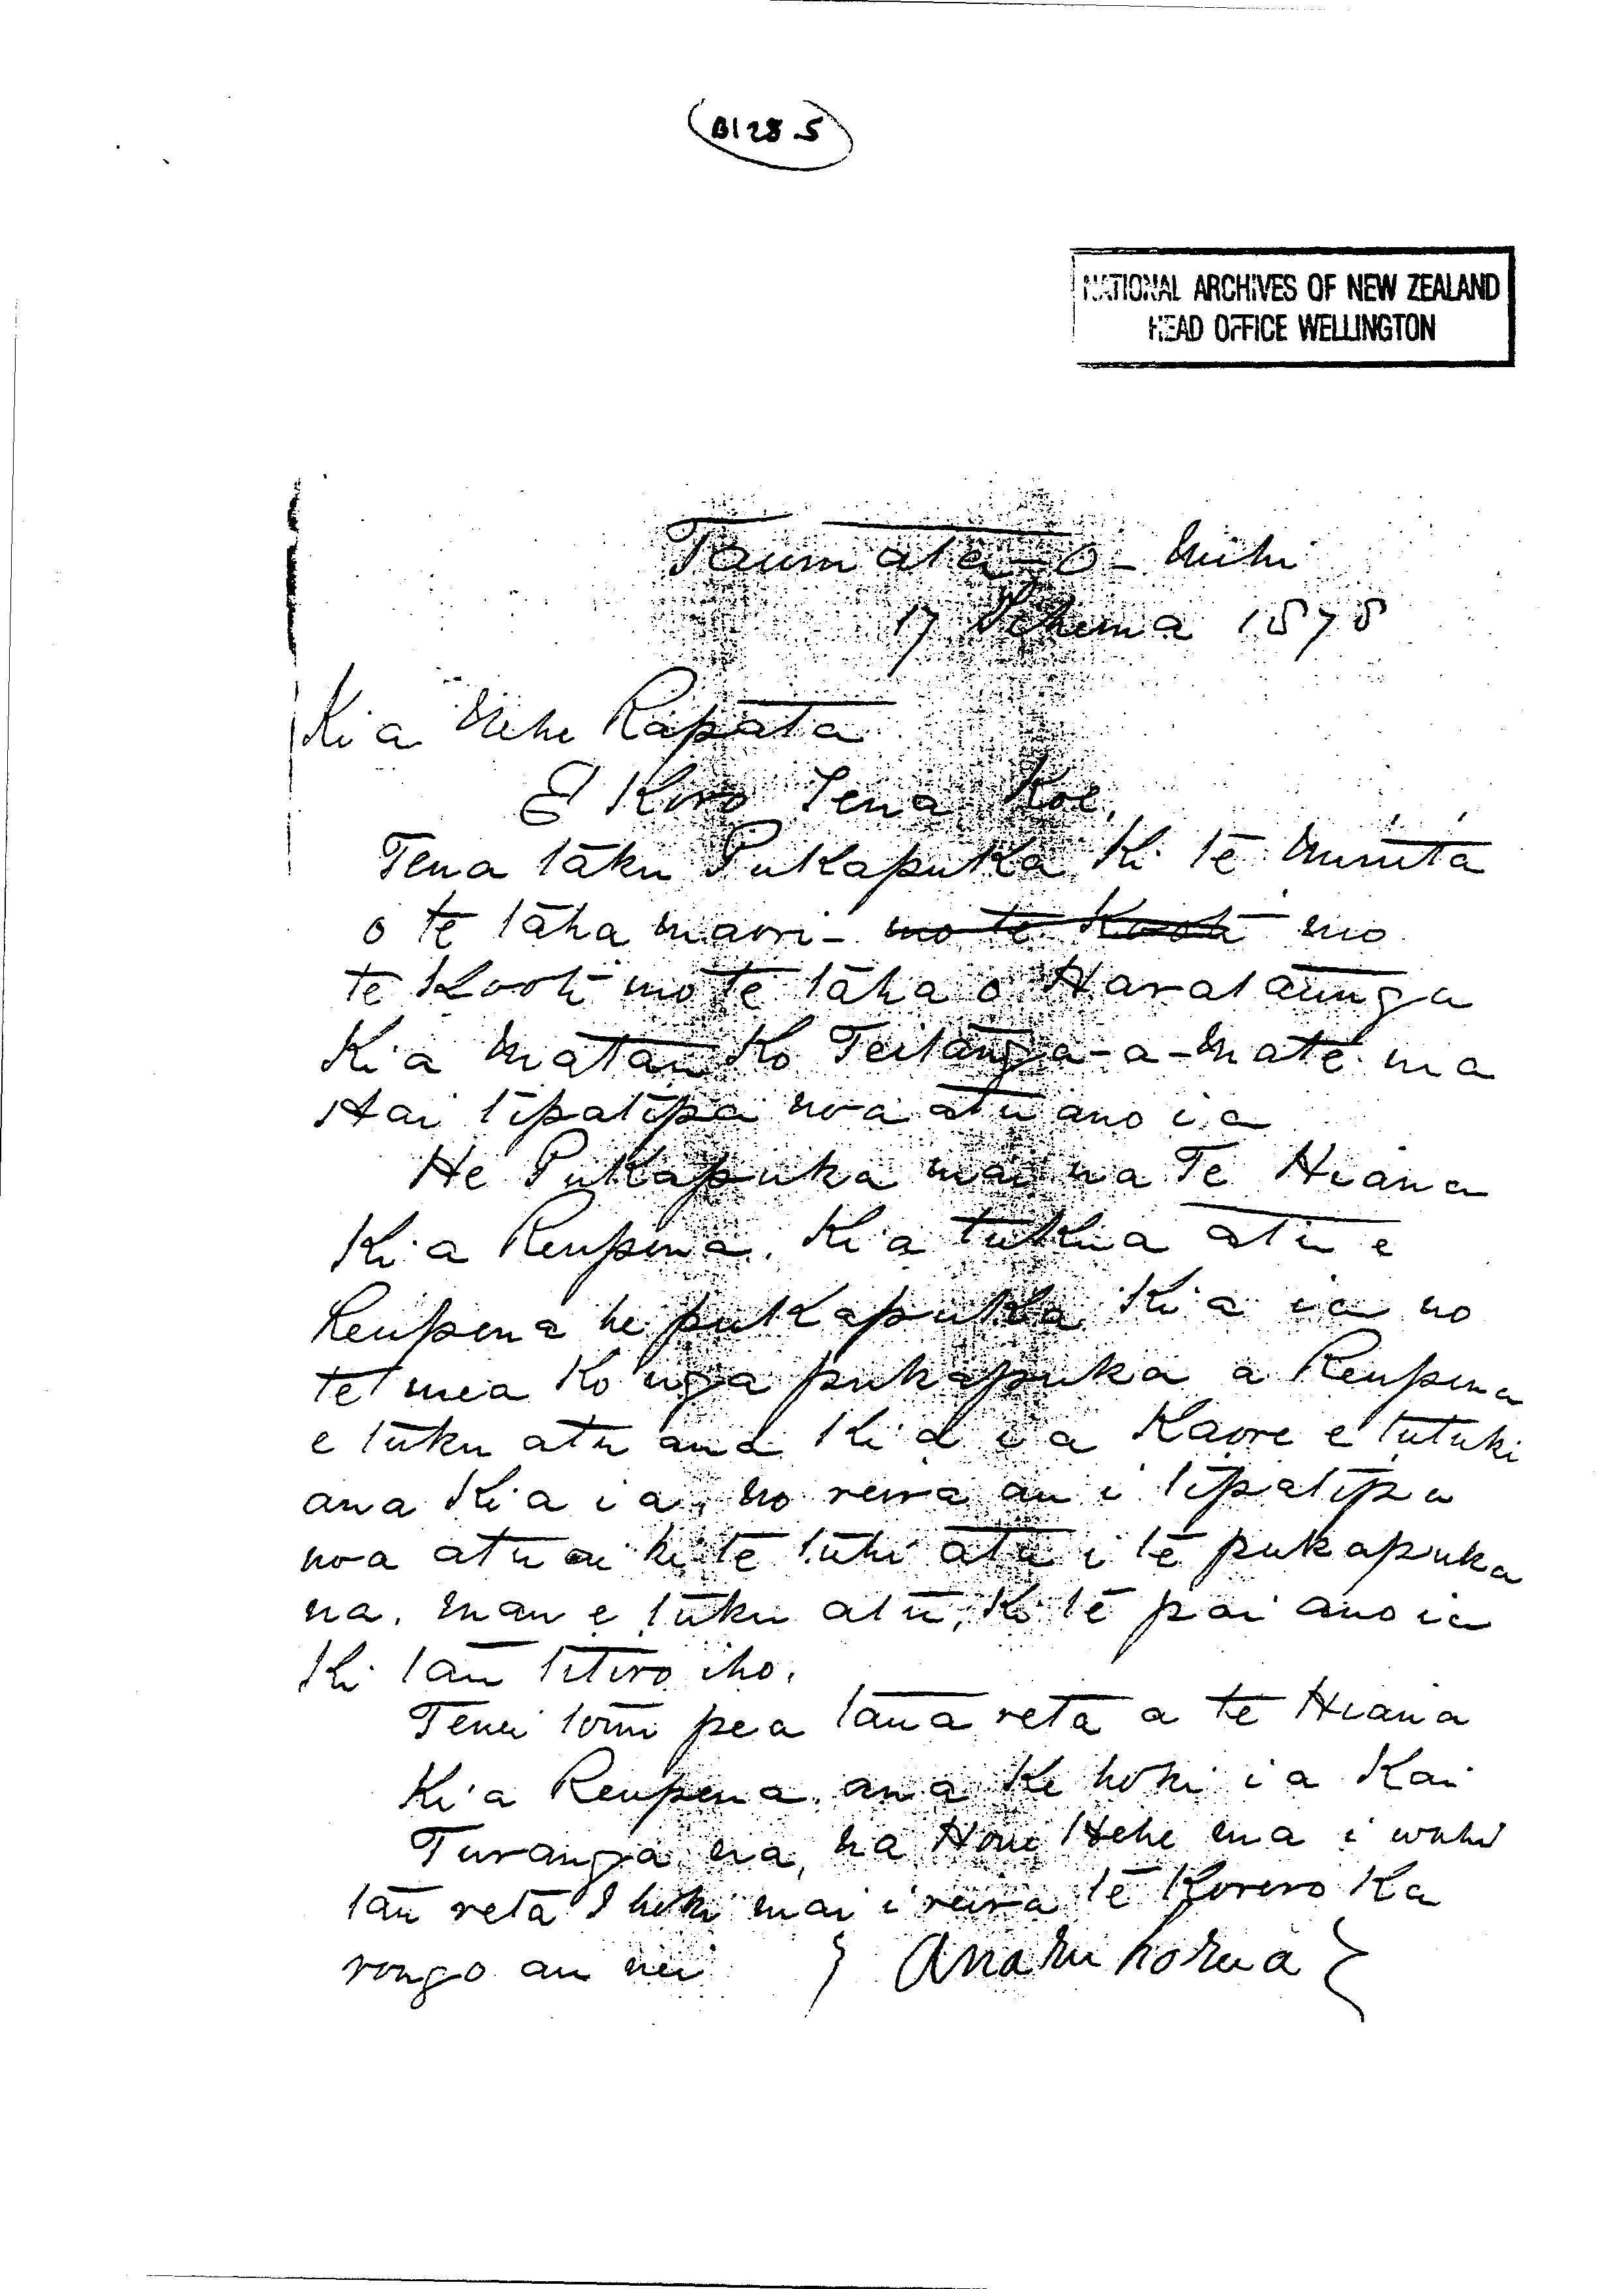 (B128 5)
NATIONAL ARCHIVES OF NEW ZEALAND
HEAD OFFICE WELLINGTON
Taumata-o-Mihi
17 Tihema 1878
Kia Meha Rapata
E Koro Tena Koe,
Tena taku Pukapuka Ki te Minita
o te taha maori - mo te Kooti mo
te Kooti mo te taha o Harataunga
Kia Matau Ko Teitanga-a-Mate ma
Hai tipatipa noa atu ano ia
He Pukapuka mai na Te Hiana
Kia Reupena. Kia tukua atu e
Reupena he pukapuka Kia ia no
te mea Ko nga pukapuka a Reupena
e tuku atu ana Kia ia Kaore e tutuki
ana Kia ia, no reira au i tipatipa
noa atu ai ki te tuhi atu i te pukapuka
na. mau e tuku atu, Ko te pai ano ia
Ki tau titiro iho.
Tenei tonu pea taua reta a te Hiana
Kia Reupena, ana Ke hoki ia Kai
Turanga na, na Hone Hehe ma i wahi
tau reta I hoki mai i reira te Korero Ka
rongo au nei } Anaru Kahua }